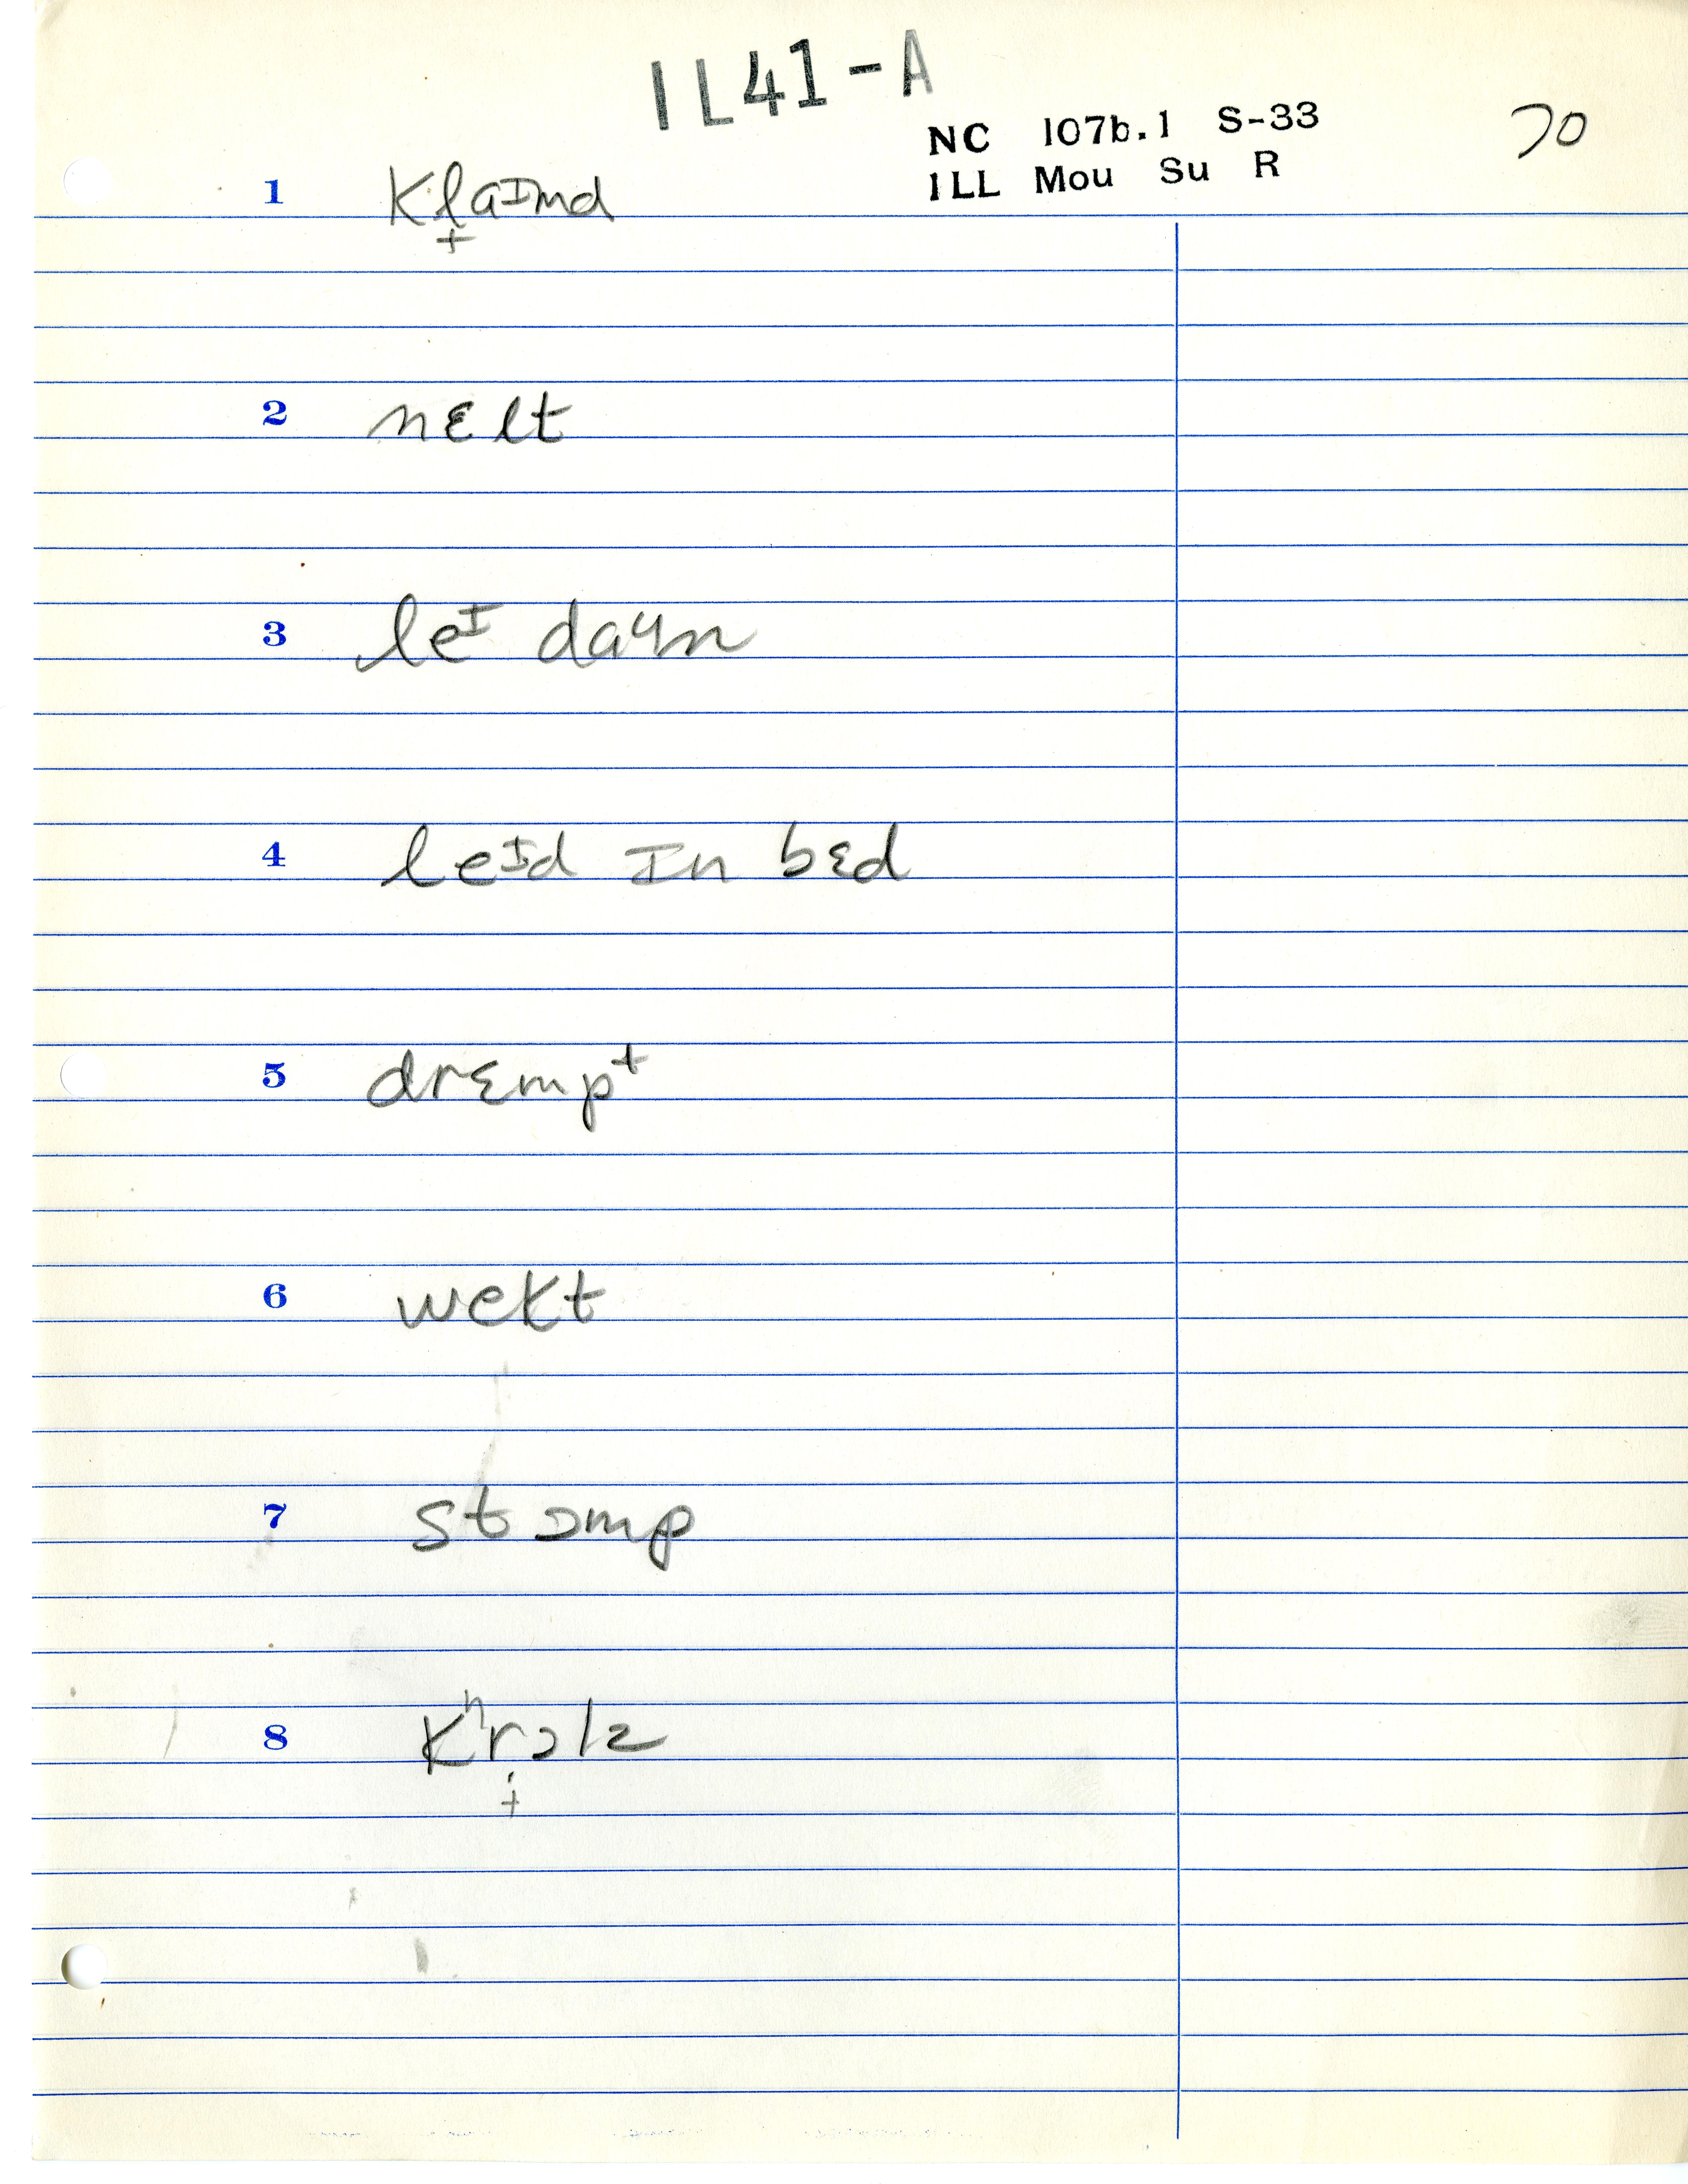 1L41-A
NC 107b.1 S-33 70
ILL Mou Su R
1 kl̟aɪmd
2 nɛlt
3 leᴵ daᶙn
4 leᴵd ɪn bɛd
5 drɛmpᵗ
6 wekt
7 stɔmp
8 kʰr̟ɔlz